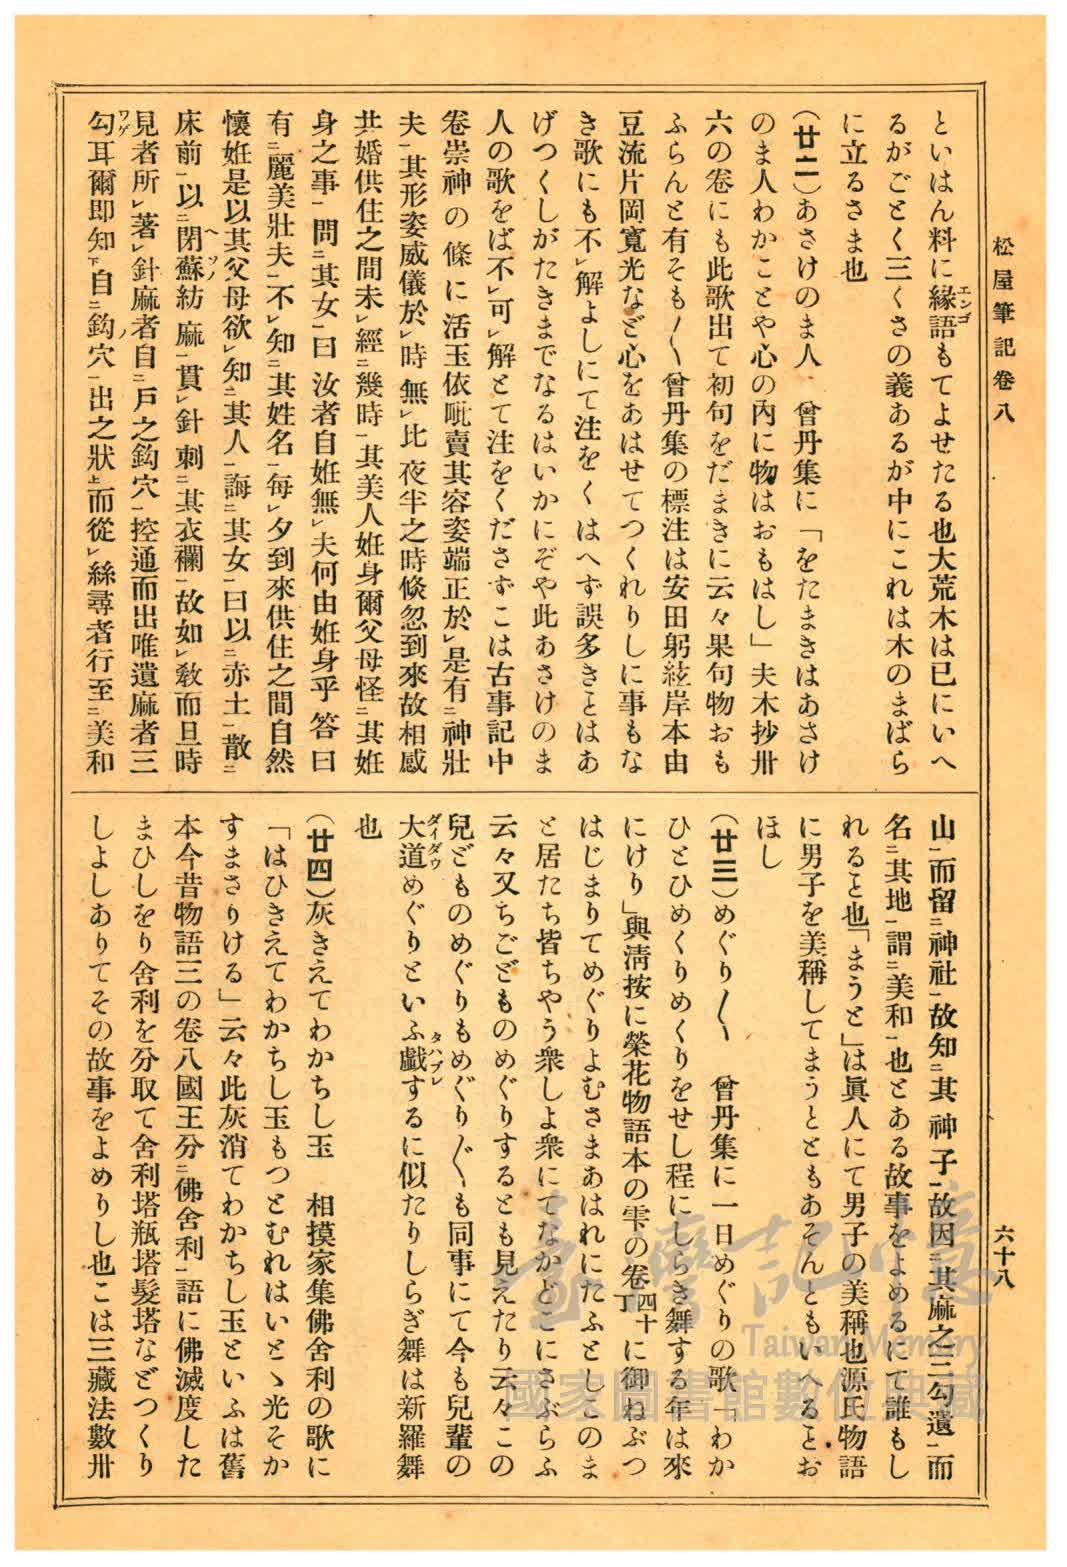 松屋筆記卷八
六十八
といはん料に縁語もてよせたる也大荒木は已にいへ
エンゴ
るがごとく三くさの義あるが中にこれは木のまばら
に立るさま也
(廿二)あさけのま人 曾丹集に「をたまきはあさけ
のま人わかことや心の內に物はおもはし」夫木抄卅
六の卷にも此歌出て初句をだまきに云々果句物おも
ふらんと有そも〳〵曾丹集の標注は安田躬絃岸本由
豆流片岡寬光など心をあはせてつくれりしに事もな
き歌にも不レ解よしにて注をくはへず誤多きとはあ
げつくしがたきまでなるはいかにぞや此あさけのま
人の歌をば不レ可レ解とて注をくださずこは古事記中
卷崇神の條に活玉依毗賣其容姿端正於レ是有二神壯
夫一其形姿威儀於レ時無レ比夜半之時倏忽到來故相感
共婚供住之間未レ經二幾時一其美人姙身爾父母怪二其姙
身之事一問二其女一曰汝者自姙無レ夫何由姙身乎答曰
有二麗美壯夫一不レ知二其姓名一每レ夕到來供住之間自然
懷姙是以其父母欲レ知二其人一誨二其女一曰以二赤土一散二
床前一以二閉蘇紡麻一貫レ針刺二其衣襴一故如レ敎而旦時
ヘソノ
見者所レ著レ針麻者自二戶之鈎穴一控通而出唯遺麻者三
勾耳爾即知下自二鈎穴一出之狀上而從レ絲尋者行至二美和
ワゲ
ノ
山一而留二神社一故知二其神子一故因二其麻之三勾遺一而
名二其地一謂二美和一也とある故事をよめるにて誰もし
れること也「まうと」は眞人にて男子の美稱也源氏物語
に男子を美稱してまうとともあそんともいへることお
ほし
(廿三)めぐり〳〵 曾丹集に一日めぐりの歌「わか
ひとひめくりめくりをせし程にしらき舞する年は來
にけり」與淸按に榮花物語本の雫の卷四十丁に御ねぶつ
はじまりてめぐりよむさまあはれにたふとしこのま
と居たち皆ちやう衆しよ衆にてなかどこにさぶらふ
云々又ちごどものめぐりするとも見えたり云々この
兒どものめぐりもめぐり〴〵も同事にて今も兒輩の
大道めぐりといふ戲するに似たりしらぎ舞は新羅舞
ダイダウ
タハブレ
也
(廿四)灰きえてわかちし玉 相摸家集佛舍利の歌に
「はひきえてわかちし玉もつとむれはいとゝ光そか
すまさりける」云々此灰消てわかちし玉といふは舊
本今昔物語三の卷八國王分二佛舍利一語に佛滅度した
まひしをり舍利を分取て舍利塔瓶塔髮塔などつくり
しよしありてその故事をよめりし也こは三藏法數卅
臺灣記憶
Taiwan Memory
國家圖書館數位典藏